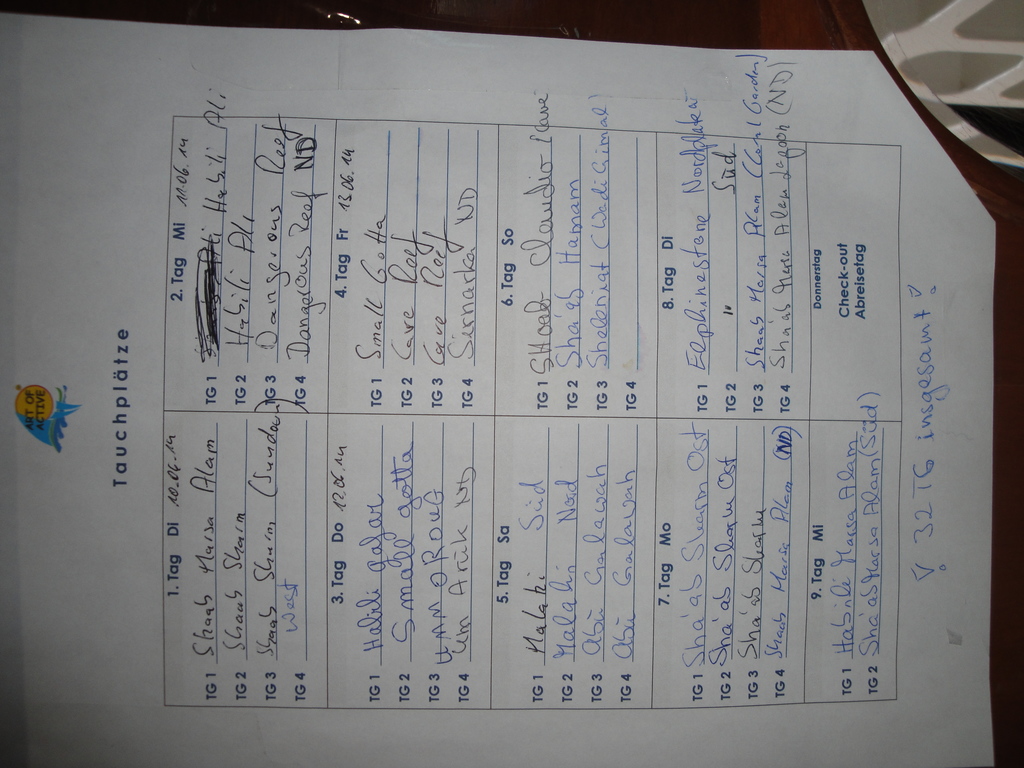 ART OF
ACTIVE
Tauchplätze
1. Tag Di 10.06.14
TG 1 Shaab Marsa Alam
TG 2 Shaab Sharm
TG 3 Shaab Sharm (Sundown)
West
TG 4
2. Tag Mi 11.06.14
TG 1 Habili Ali
TG 2 Habili Ali
TG 3 Dangerous Reef
TG 4 Dangerous Reef ND
3. Tag Do 12.06.14
TG 1 Habili Gafar
TG 2 Small gotta
TG 3 UMM OROUG
TG 4 Um Aruk ND
4. Tag Fr 13.06.14
TG 1 Small Gotta
TG 2 Cave Reef
TG 3 Cave Reef
TG 4 ND
5. Tag Sa
TG 1 Malahi Süd
TG 2 Malahi Nord
TG 3 Abu Galawah
TG 4 Abu Galawah
6. Tag So
TG 1 Claudio
TG 2 Sha'ab Hamam
TG 3 (Wadi Gimal)
TG 4
7. Tag Mo
TG 1 Sha'ab Sharm Ost
TG 2 Sha'ab Sharm Ost
TG 3 Sha'ab Sharm
TG 4 Shaab Marsa Alam (ND)
8. Tag Di
TG 1 Elphinestone Nordplateau
TG 2 " Süd
TG 3 Shaab Marsa Alam (Coral Garden)
TG 4 Sha'ab Marsa Alam Lagoon (ND)
9. Tag Mi
TG 1 Habili Marsa Alam
TG 2 Sha'ab Marsa Alam (Süd)
Donnerstag
Check-out
Abreisetag
32 TG insgesamt!